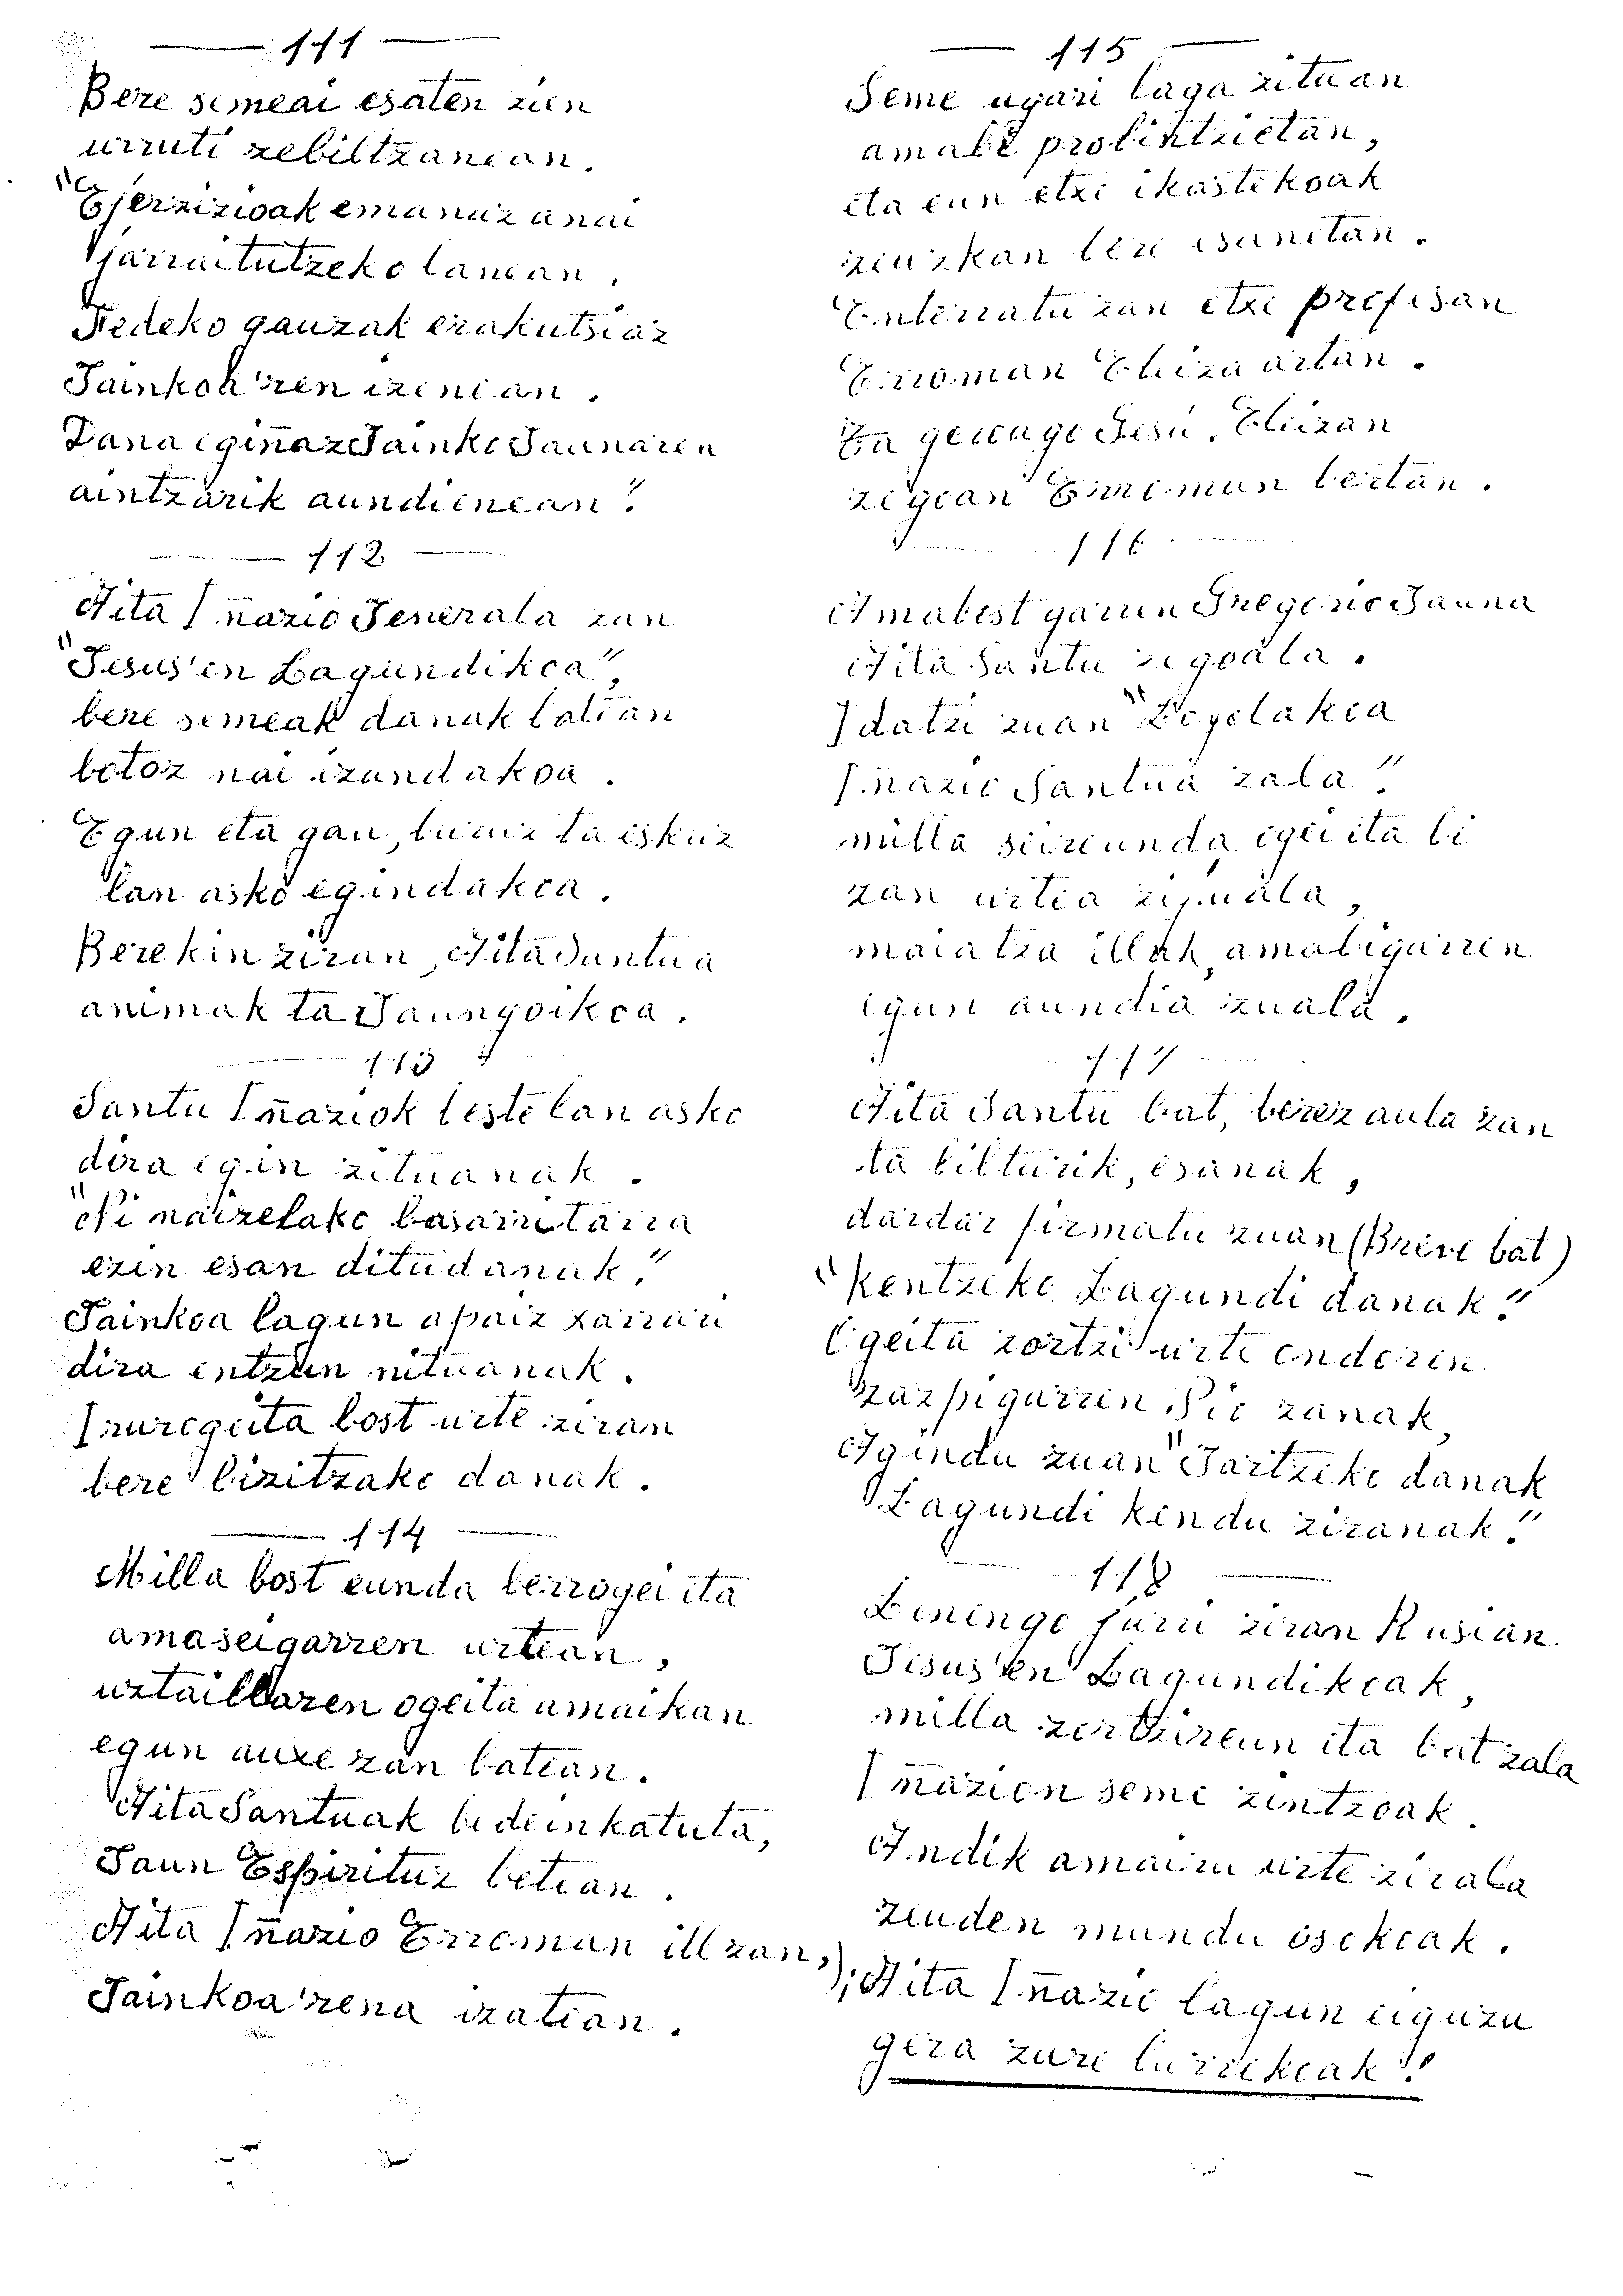 — 111 —
Bere semeai esaten zien
urruti zebiltzanean.
"Ejerzizioak emanaz anai
jarraitutzeko lanean,
Fedeko gauzak erakutsiaz
Jainkoa'ren izenian.
Dana egiñaz Jainko Jaunaren
aintzarik aundienean".
— 112 —
Aita Iñazio Jenerala zan
"Jesus'en Lagundikoa",
bere semeak danak batian
botoz nai izandakoa.
Egun eta gau, buruz ta eskuz
lan asko egindakoa.
Berekin ziran, Aita Santua
animak ta Jaungoikoa.
— 113 —
Santu Iñaziok beste lan asko
dira egin zituanak.
"Ni naizelako basarritarra
ezin esan ditudanak".
Jainkoa lagun apaiz xarrari
dira entzun nituanak.
Irurogeita bost urte ziran
bere bizitzako danak.
— 114 —
Milla bost eunda berrogei eta
amaseigarren urtean,
uztaillaren ogeita amaikan
egun auxe zan batean.
Aita Santuak bedeinkatuta,
Jaun Espirituz betean.
Aita Iñazio Erroman ill zan,
Jainkoa'rena izatean.
— 115 —
Seme ugari laga zituan
amabi probintzietan,
eta eun etxe ikastekoak
zeuzkan bere esanetan.
Enterratu zan etxe profesan
Erroman Eleiza artan.
Ta geroago Jesu. Eleizan
zegoan Erroman bertan.
— 116 —
Amabost garren Gregorio Jauna
Aita Santu zegoala.
Idatzi zuan "Loyolakoa
Iñazio Santua zala".
milla seireunda ogei eta bi
zan urtea
maiatza illak, amabigarren
egun aundia zuala.
— 117 —
Aita Santu bat, berez aula zan
ta bilturik, esanak,
dardar firmatu zuan (Breve bat)
"kentzeko Lagundi danak".
Ogeita zortzi urte ondoren
zazpigarren Pio zanak,
Agindu zuan "Jartzeko danak
Lagundi kendu ziranak".
— 118 —
Leningo jarri ziran Rusian
Jesus'en Lagundikoak,
milla zortzireun eta bat zala
Iñazion seme zintzoak.
Andik amairu urte zirala
zeuden mundu osokoak.
¡Aita Iñazio lagun eiguzu
gera zure lurrekoak!!